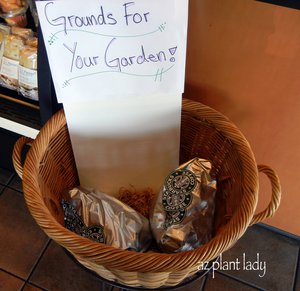 Grounds For
Your Garden!
az plant lady